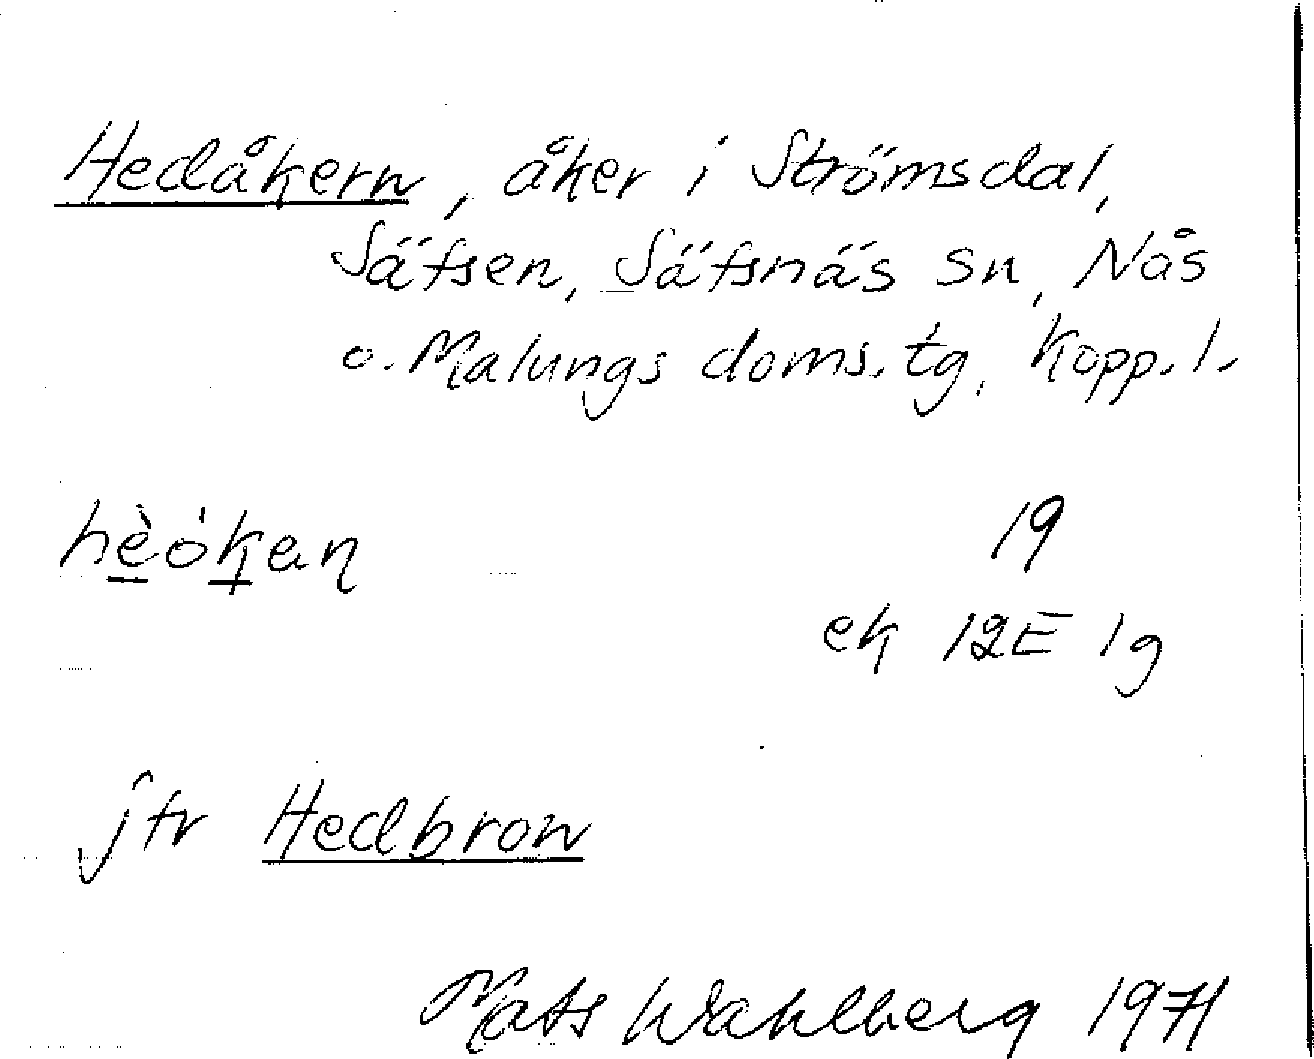 Hedåkern, åker i Strömsdal,
Säfsen, Säfsnäs sn, Nås
o. Malungs doms. tg, Kopp. l.
hèo̍kaɳ
19
ek 12E 1g
jfr Hedbron
Mats Wahlberg 1971